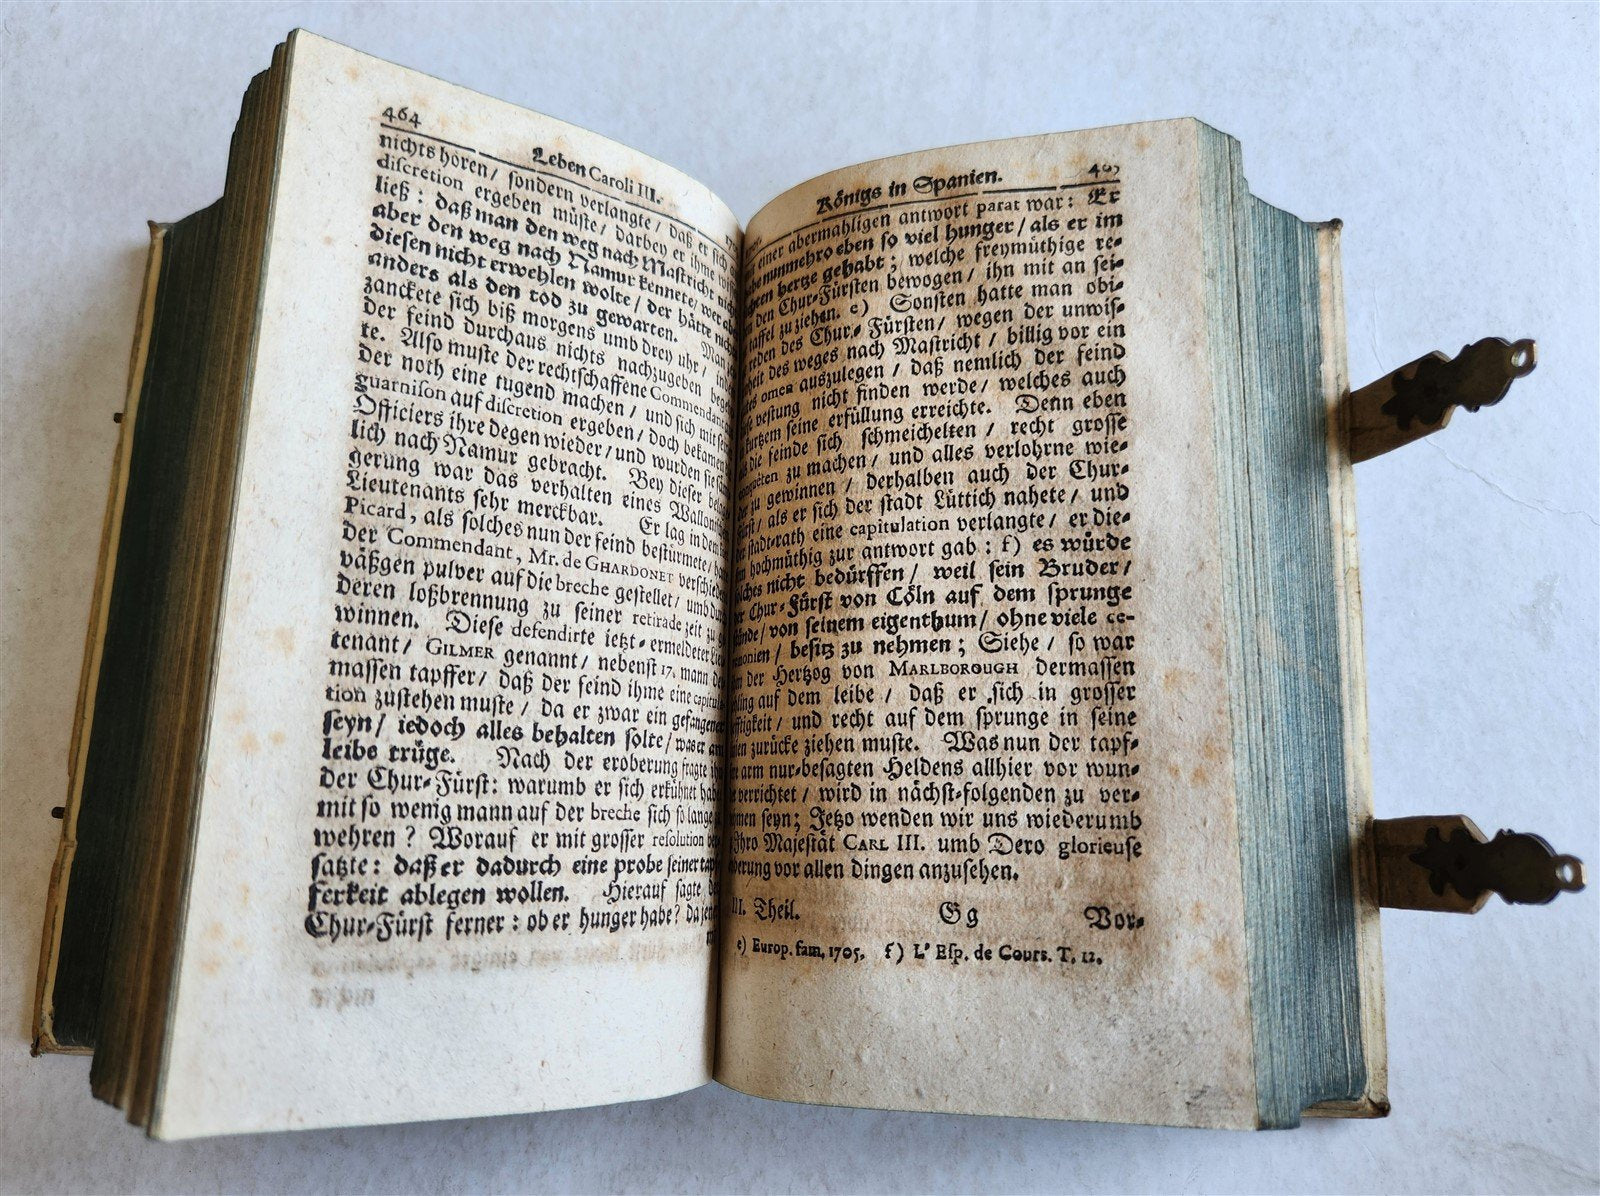 464
Leben Caroli III.
nichts hören/ sondern verlangte/ daß er sich
discretion ergeben müste/ darbey er ihme
ließ: daß man den weg nach Mastricht
aber den weg nach Namur kennete/ wer
diesen nicht erwehlen wolte/ der hätte
anders als den tod zu gewarten. Man
zanckete sich biß morgens umb drey uhr/
der feind durchaus nichts nachzugeben
te. Also muste der rechtschaffene Commendant
der noth eine tugend machen/ und sich mit
guarnison auf discretion ergeben/ doch bekamen
Officiers ihre degen wieder/ und wurden
lich nach Namur gebracht. Bey dieser
gerung war das verhalten eines
Lieutenants sehr merckbar. Er lag in dem
Picard, als solches nun der feind bestürmete/
der Commendant, Mr. de GHARDONET
väßgen pulver auf die breche gestellet/ umb
deren loßbrennung zu seiner retirade zeit zu
winnen. Diese defendirte ietzt-ermeldeter
tenant/ GILMER genannt/ nebenst 17. mann
massen tapffer/ daß der feind ihme eine
tion zustehen muste/ da er zwar ein gefangener
seyn/ iedoch alles behalten solte/ was er am
leibe trüge. Nach der eroberung fragte
der Chur-Fürst: warumb er sich erkühnet
mit so wenig mann auf der breche sich so lange
wehren? Worauf er mit grosser resolution
satzte: daß er dadurch eine probe seiner
ferkeit ablegen wollen. Hierauf sagte
Chur-Fürst ferner: ob er hunger habe?
Königs in Spanien.
einer abermahligen antwort parat war: Er
nunmehro eben so viel hunger/ als er im
hertze gehabt; welche freymüthige re-
den Chur-Fürsten bewogen/ ihn mit an sei-
taffel zu ziehen. e) Sonsten hatte man obi-
reden des Chur-Fürsten/ wegen der unwis-
des weges nach Mastricht/ billig vor ein
omen auszulegen/ daß nemlich der feind
vestung nicht finden werde/ welches auch
kurtzem seine erfüllung erreichte. Denn eben
die feinde sich schmeichelten/ recht grosse
zu machen/ und alles verlohrne wie-
zu gewinnen/ derhalben auch der Chur-
als er sich der stadt Lüttich nahete/ und
stadt-rath eine capitulation verlangte/ er die-
hochmüthig zur antwort gab: f) es würde
nicht bedürffen/ weil sein Bruder/
Chur-Fürst von Cöln auf dem sprunge
von seinem eigenthum/ ohne viele ce-
besitz zu nehmen; Siehe/ so war
der Hertzog von MARLBOROUGH dermassen
auf dem leibe/ daß er sich in grosser
und recht auf dem sprunge in seine
zurücke ziehen muste. Was nun der tapf-
arm nur-besagten Heldens allhier vor wun-
verrichtet/ wird in nächst-folgenden zu ver-
seyn; Jetzo wenden wir uns wiederumb
Ihro Majestät CARL III. umb Dero glorieuse
vor allen dingen anzusehen.
III. Theil. Gg Vor-
e) Europ. fam, 1705. f) L' Esp. de Cours. T. 12.